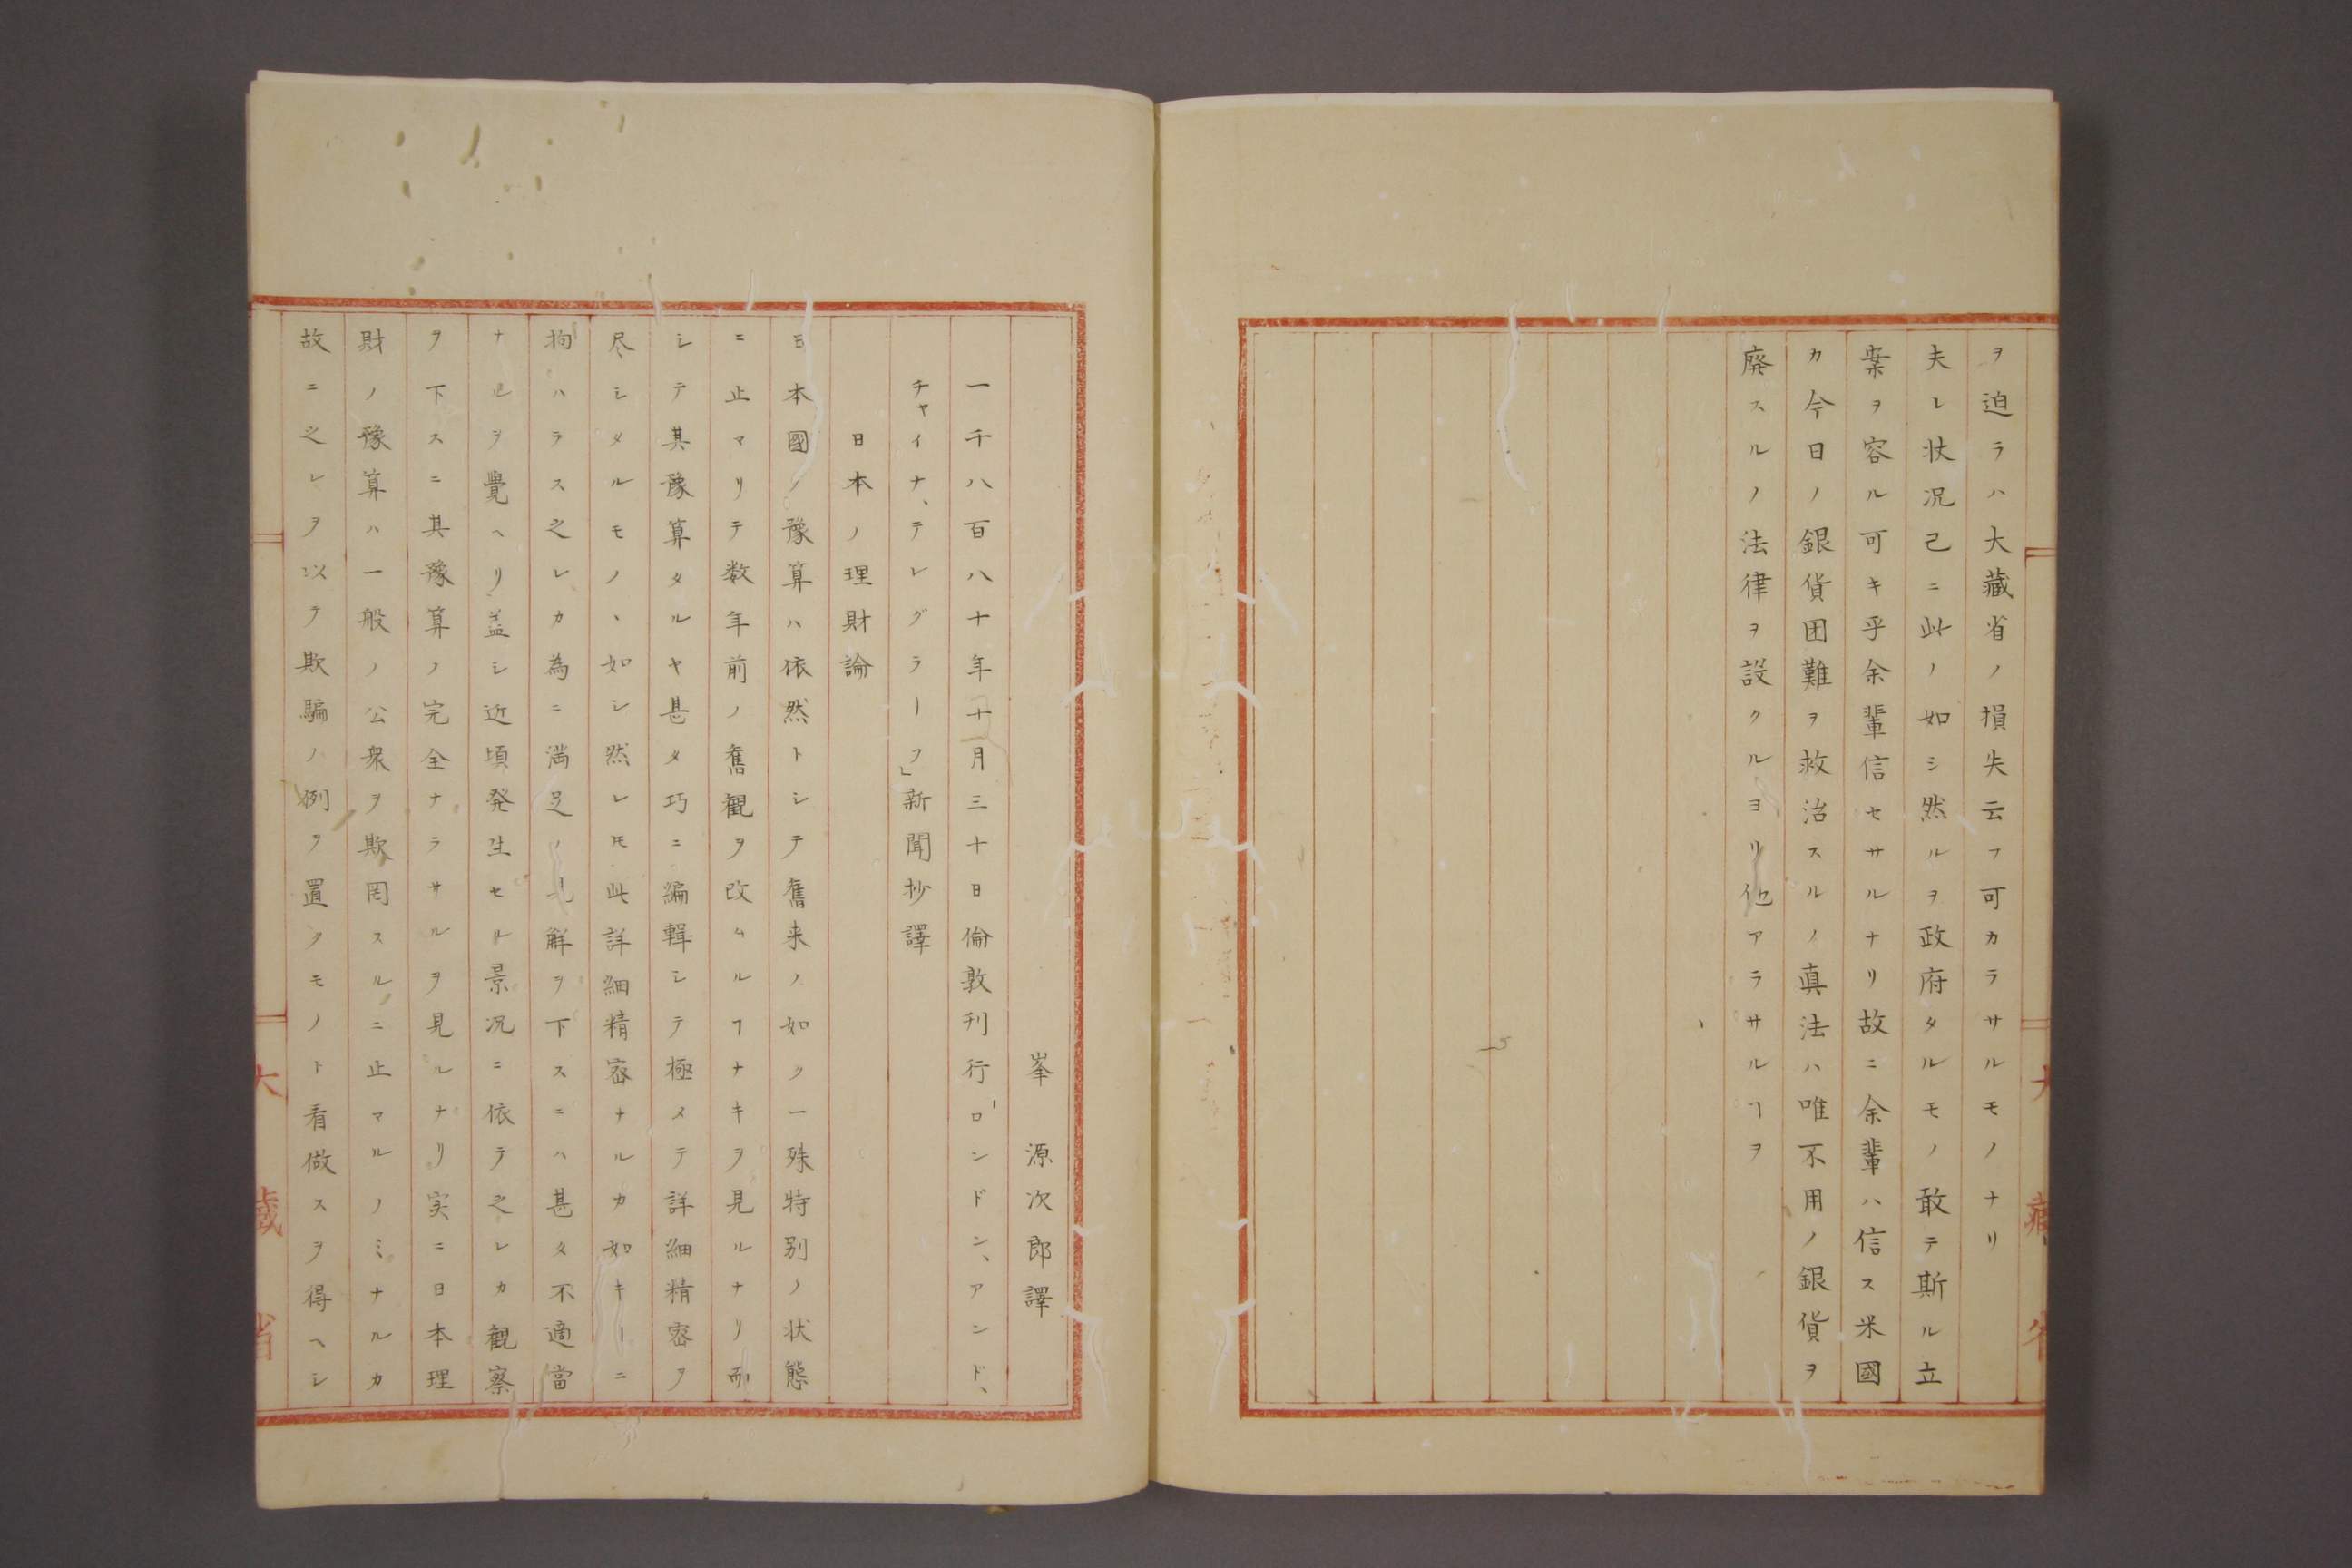 ヲ迫ラハ大藏省ノ損失云フ可カラサルモノナリ
夫レ状況己ニ此ノ如シ然ルヲ政府タルモノ敢テ斯ル立
案ヲ容ル可キ乎余輩信セサルナリ故ニ余輩ハ信ス米國
カ今日ノ銀貨困難ヲ救治スルノ真法ハ唯不用ノ銀貨ヲ
廃スルノ法律ヲ設クルヨリ他アラサルヿヲ
大藏省
峯源次郎譯
一千八百八十年十月三十日倫敦刊行「ロンドン、アンド、
チャイナ、テレグラーフ」新聞抄譯
日本ノ理財論
日本國ノ豫算ハ依然トシテ舊来ノ如ク一殊特別ノ状態
ニ止マリテ数年前ノ舊觀ヲ改ムルヿナキヲ見ルナリ而
シテ其豫算タルヤ甚タ巧ニ編輯シテ極メテ詳細精密ヲ
尽シタルモノヽ如シ然レ𪜈此詳細精密ナルカ如キーニ
拘ハラス之レカ為ニ満足ノ見解ヲ下スニハ甚タ不適當
ナルヲ覺ヘリ蓋シ近頃発生セル景况ニ依テ之レカ觀察
ヲ下スニ其豫算ノ完全ナラサルヲ見ルナリ実ニ日本理
財ノ豫算ハ一般ノ公衆ヲ欺罔スルニ止マルノミナルカ
故ニ之レヲ以テ欺騙ノ例ヲ置クモノト看做スヲ得ヘシ
大藏省